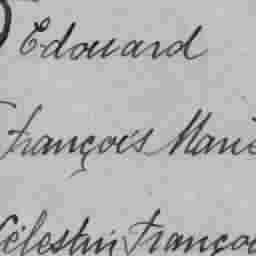 Edouard
François Marie
Célestin, Françoi